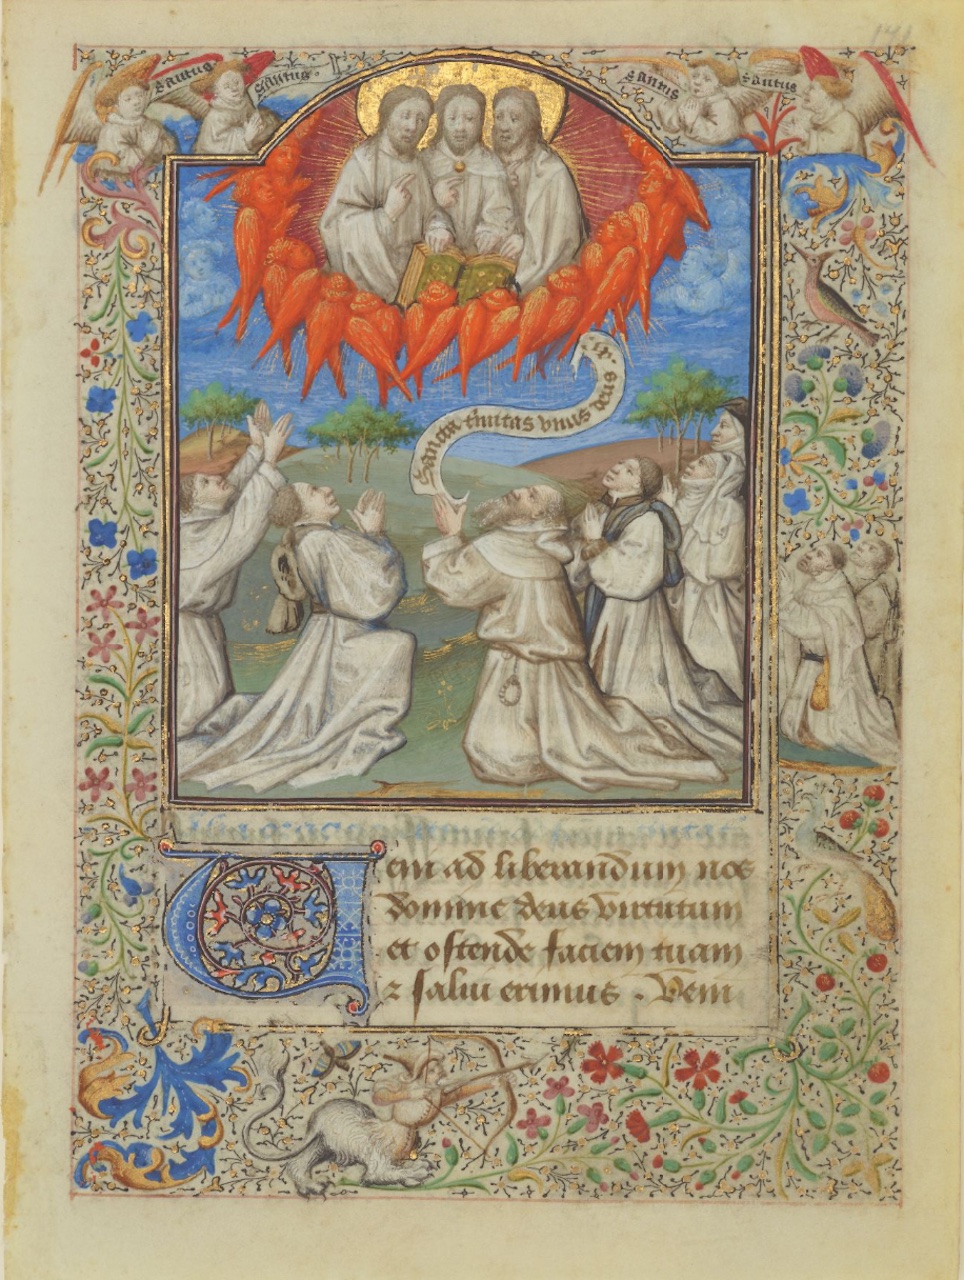 sanctus
sanctus
sanctus
sanctus
Sancta trinitas unus deus
Veni ad liberandum nos
domine deus virtutum
et ostende faciem tuam
⁊ salvi erimus . Veni